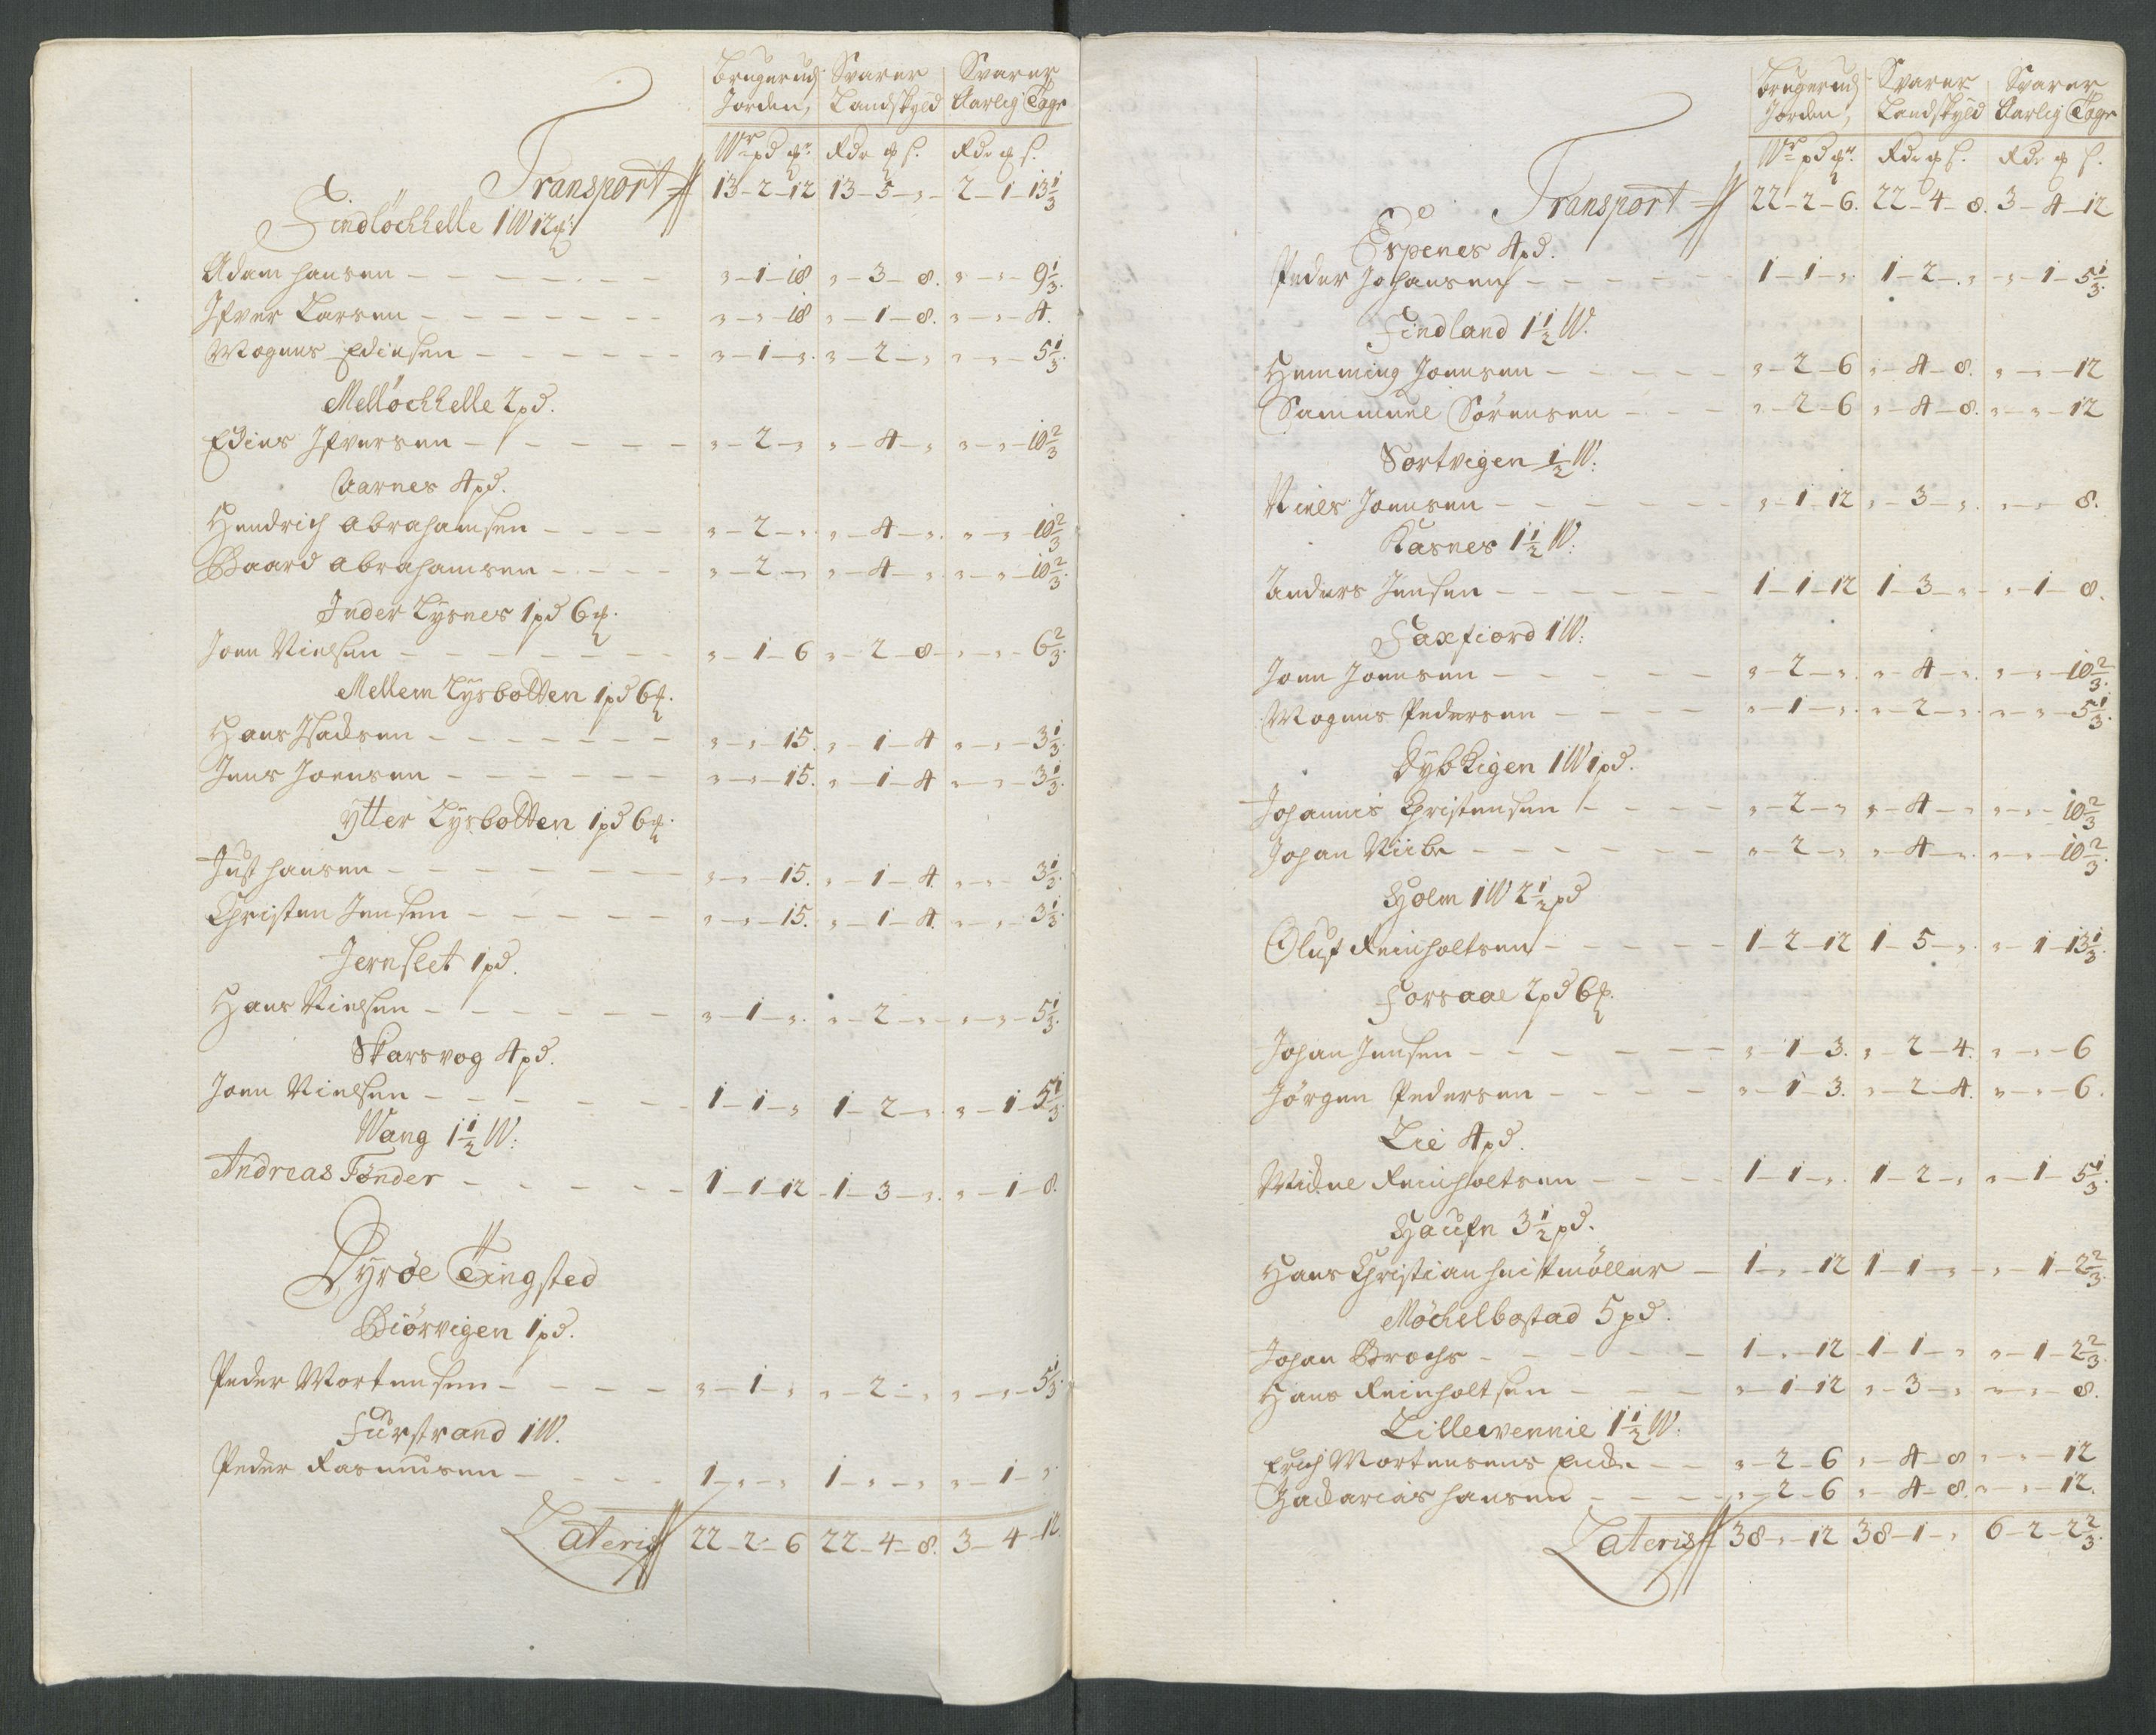 Brugerud Svarer Svarer
Jorden, Landskyld Aarlig Tage
Wr pd mk. Rdr mk s. Rdr mk s.
Transport 13-2-12 13-5-„- 2-1-13 1/3
Findlöchhelle 1W 12 mk:
Adam Hansen - - - - - - „-1-18 „-3-8. „-„-9 1/3.
Ifver Larsen - - - - - - - „-„-18 „-1-8. „-„-4.
Mogens Edissen - - - - - - „-1-„. „-2-„ „-„-5 1/3.
Mellöchhelle 2 pd.
Edies Ifversen - - - - - - „-2-„ „-4-„ „-„-10 2/3
Aarnes 4 pd.
Hendrich Abrahamsen - - - - „-2-„. „-4-„. „-„-10 2/3
Baard Abrahamsen - - - - „-2-„ „-4-„. „-„-10 2/3.
Inder Lysnes 1 pd 6 mk.
Joen Nielsen - - - - - - - „-1-6 „-2-8-„-„-6 2/3.
Mellem Lysbotten 1 pd 6 mk.
Hans Isacksen - - - - - - - „-„-15. „-1-4 „-„-3 1/3.
Jens Joensen - - - - - - - „-„-15. „-1-4 „-„-3 1/3.
ytter Lysbotten 1 pd 6 mk.
Just Hansen - - - - - - - „-„-15. „-1-4. „-„-3 1/3.
Christen Jensen - - - - - - „-„-15. „-1-4. „-„-3 1/3.
Jernslet 1 pd.
Hans Nielsen - - - - - - „-1-„. „-2-„-„-„-5 1/3.
Skarsvog 4 pd.
Joen Nielsen - - - - - - 1-1-„ 1-2-„. „-1-5 1/3.
Wang 1 1/2 W:
Andreas Tønder - - - - - 1-1-12 -1-3-„. „-1-8.
Dyröe Tingsted
Biörvigen 1 pd.
Peder Mortensen - - - - „-1-„ „-2-„ „-„-5 1/3.
Furstrand 1 W.
Peder Rasmusen - - - - 1-„-„ 1-„-„ „-1-„
Lateris 22-2-6 22-4-8. 3-4-12
Brugerud Svarer Svarer
Jorden, Landskyld Aarlig Tage
Wr pd mk. Rdr mk s. Rdr mk s.
Transport 22-2-6. 22-4-8. 3-4-12
Espenes 4 pd.
Peder Johansen - - - - - 1-1-„. 1-2-„ „-1-5 1/3.
Findland 1 1/2 W.
Hemming Joensen - - - - - „-2-6 „-4-8. „-„-12
Sammuel Sörensen - - - „-2-6 „-4-8. „-„-12
Sortvigen 1/2 W:
Niels Joensen - - - - - - „-1-12 „-3-„. „-„-8.
Kasnes 1 1/2 W:
Anders Jensen - - - - - - 1-1-12 1-3-„- „-1-8.
Faxfiord 1 W:
Joen Joensen - - - - - „-2-„. „-4-„. „-„-10 2/3.
Mogens Pedersen - - - - „-1-„. „-2-„. „-„-5 1/3.
Dybvigen 1 W 1 pd.
Johannis Christensen - - - - „-2-„ „-4-„ „-„-10 2/3
Johan Viibe - - - - - - „-2-„ „-4-„. „-„-10 2/3.
Holm 1 W 2 1/2 pd
Oluf Reinholtsen - - - - - 1-2-12 1-5-„. „-1-13 1/3.
Forsaae 2 pd 6 mk.
Johan Jensen - - - - - - „-1-3. „-2-4. „-„-6
Jörgen Pedersen - - - - „-1-3. „-2-4. „-„-6.
Lie 4 pd.
Michel Reinholtsen - - - - 1-1-„. 1-2-„ „-1-5 1/3.
Haufn 3 1/2 pd.
Hans Christian Heitmöller - 1-„-12 1-1-„-„-1-2 2/3.
Möchelbostad 5 pd.
Johan Brochs - - - - - - 1-„-12 -1-1-„ „-1-2 2/3.
Hans Reinholtsen - - - „-1-12 „-3-„ „-„-8.
Lillewennie 1 1/2 W:
Erich Mortensens Encke - - „-2-6 „-4-8 „-„-12
Zacharias Hansen - - - „-2-6 „-4-8. „-„-12.
Lateris 38-„-12 38-1-„ 6-2-2 2/3.